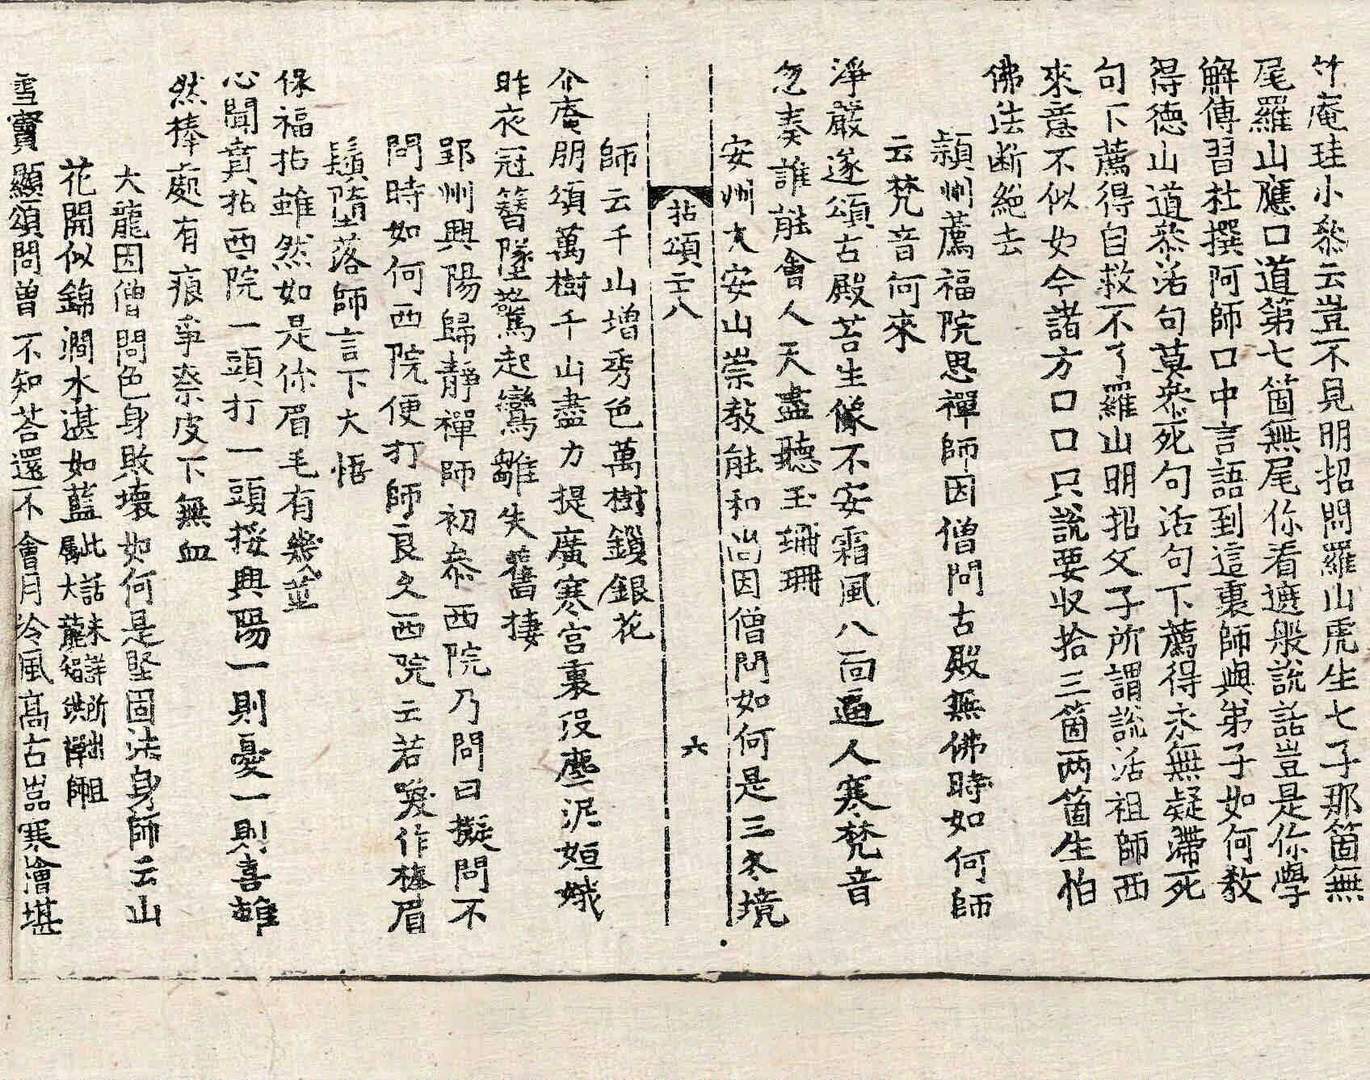 竹庵珪小叅云豈不見明招問羅山虎生七子那箇無
尾羅山應口道第七箇無尾你看遮般說話豈是你學
解傳習杜撰阿師口中言語到這裏師與弟子如何教
得德山道叅活句莫叅死句活句下薦得永無疑滯死
句下薦得自救不了羅山明招父子所謂說活祖師西
來意不似如今諸方口口只說要收拾三箇两箇生怕
佛法断絶去
穎州薦福院思禪師因僧問古殿無佛時如何師
云梵音何來
淨嚴遂頌古殿苔生像不安霜風八面逼人寒梵音
忽奏誰能會人天盡聽玉珊珊
安州大安山崇教能和尚因僧問如何是三冬境
拈頌二十八
六
師云千山增秀色萬樹鎖銀花
介庵朋頌萬樹千山盡力提廣寒宫裏没塵泥姮娥
昨夜冠簪墜驚起鸞雛失舊棲
郢州興陽歸靜禪師初叅西院乃問曰擬問不
問時如何西院便打師良久西院云若喚作棒眉
鬚墮落師言下大悟
保福拈雖然如是你眉毛有幾莖
心聞賁拈西院一頭打一頭挼興陽一則憂一則喜雖
然棒處有痕爭奈皮下無血
大龍因僧問色身敗壞如何是堅固法身師云山
花開似錦澗水湛如藍此話未詳所出祖屬大龍智洪禪師
雪竇顯頌問曽不知荅還不會月冷風高古嵓寒檜堪